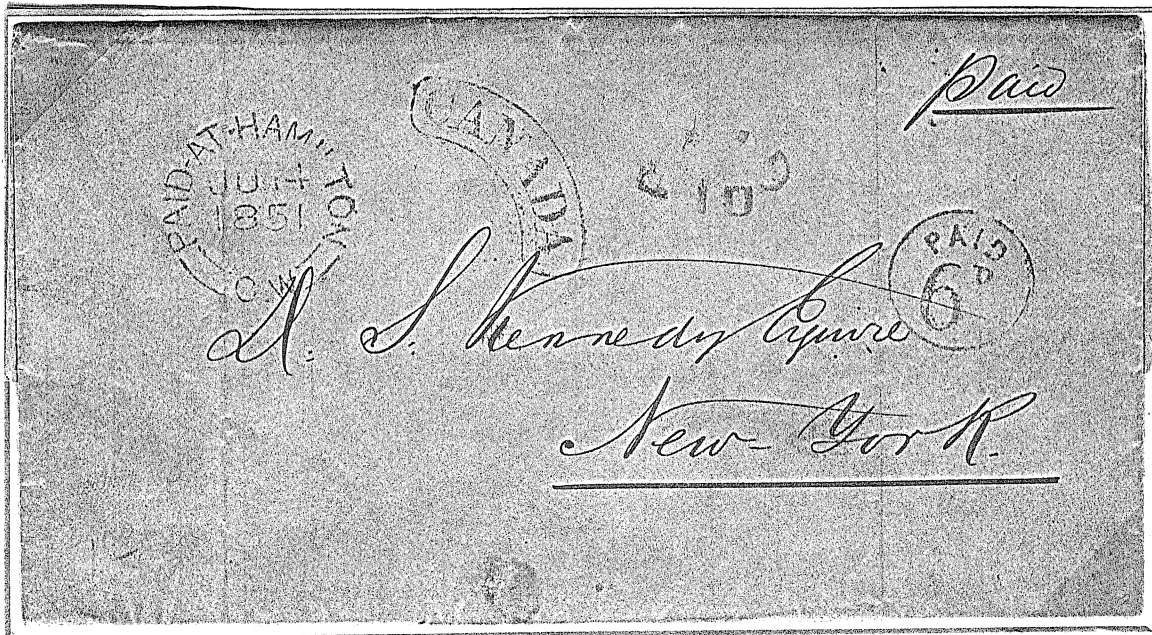 Paid
PAID-AT-HAMILTON
JU 14
1851
C.W.
CANADA
PAID
10
PAID
6 D
D. S. Kennedy Esquire
New-York.